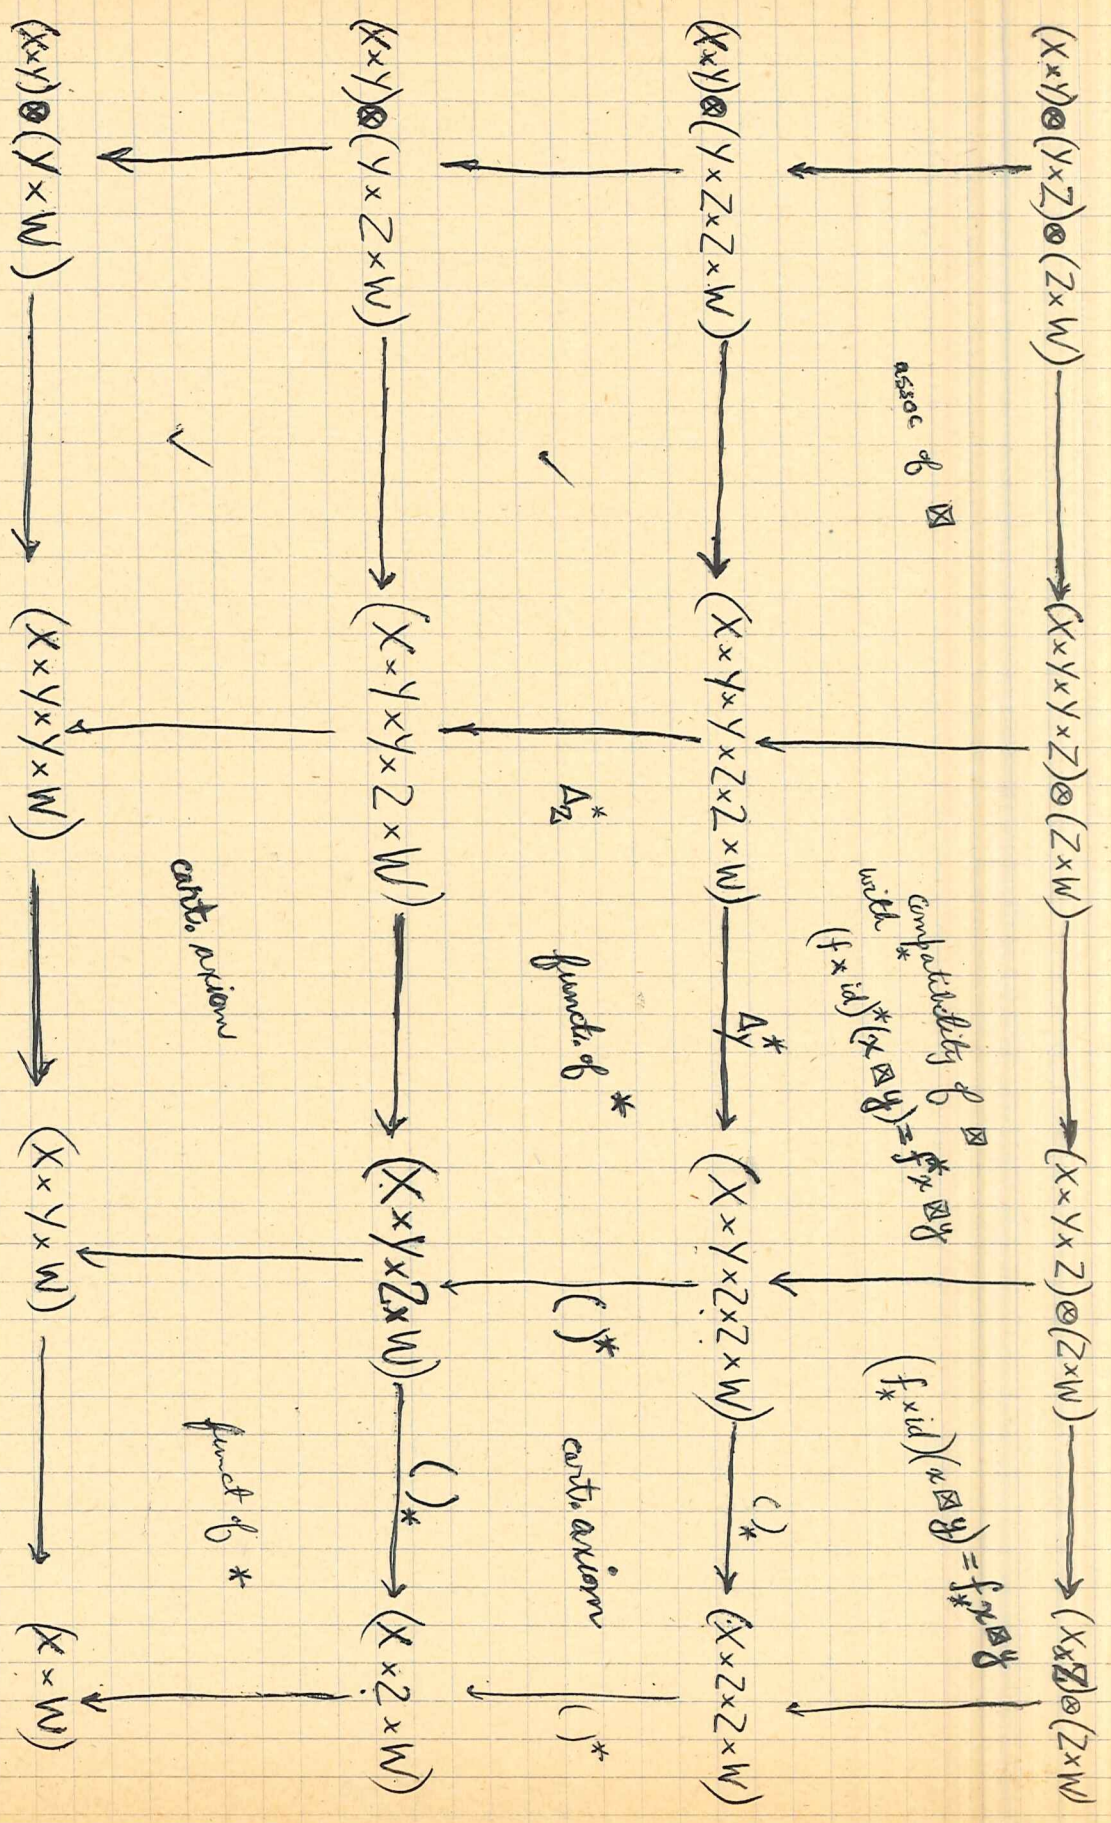 (X×Y)⊗(Y×Z)⊗(Z×W) (X×Y×Y×Z)⊗(Z×W) (X×Y×Z)⊗(Z×W) (X×Z)⊗(Z×W)
assoc of ⊠
compatibility of ⊠
with *
(f×id)*(x⊠y)=f*x⊠y
(f×id)_*(x⊠y)=f_*x⊠y
(X×Y)⊗(Y×Z×Z×W) (X×Y×Y×Z×Z×W) Δ_Y^* (X×Y×Z×Z×W) ( )_* (X×Z×Z×W)
✓ Δ_Z^* funct. of * ( )^* cart. axiom ( )^*
(X×Y)⊗(Y×Z×W) (X×Y×Y×Z×W) (X×Y×Z×W) ( )_* (X×Z×W)
✓ cart. axiom funct of *
(X×Y)⊗(Y×W) (X×Y×Y×W) (X×Y×W) (X×W)